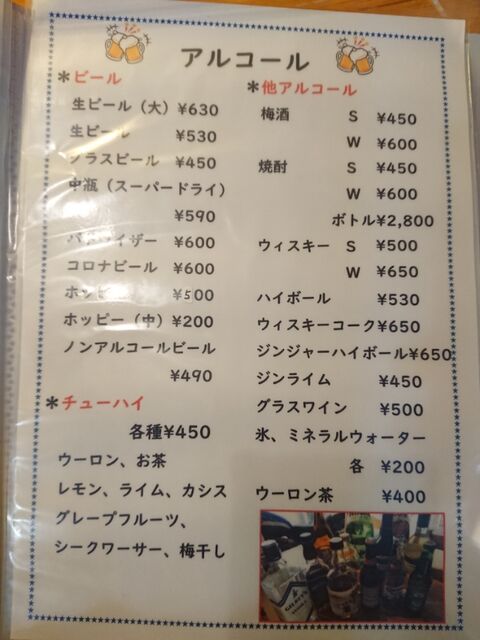 アルコール
*ビール
生ビール（大）¥630
生ビール ¥530
グラスビール ¥450
中瓶（スーパードライ）
¥590
バドワイザー ¥600
コロナビール ¥600
ホッピー ¥500
ホッピー（中）¥200
ノンアルコールビール
¥490
*チューハイ
各種¥450
ウーロン、お茶
レモン、ライム、カシス
グレープフルーツ、
シークワーサー、梅干し
*他アルコール
梅酒 S ¥450
W ¥600
焼酎 S ¥450
W ¥600
ボトル¥2,800
ウィスキー S ¥500
W ¥650
ハイボール ¥530
ウィスキーコーク¥650
ジンジャーハイボール¥650
ジンライム ¥450
グラスワイン ¥500
氷、ミネラルウォーター
各 ¥200
ウーロン茶 ¥400